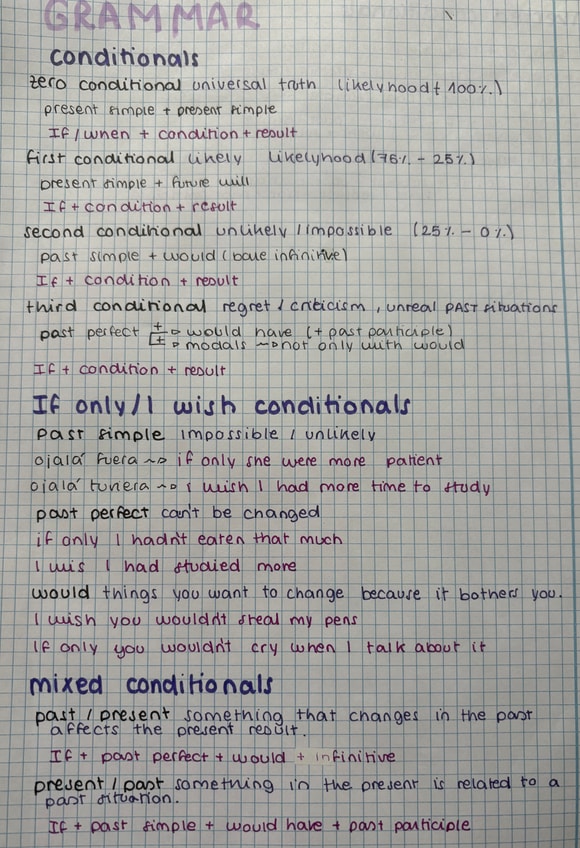 GRAMMAR
conditionals
zero conditional universal truth likelyhood (± 100%)
present simple + present simple
If / when + condition + result
first conditional likely likelyhood (75% - 25%)
present simple + future will
If + condition + result
second conditional unlikely / impossible (25% - 0%)
past simple + would (bare infinitive)
If + condition + result
third conditional regret / criticism, unreal PAST situations
past perfect + would have (+ past participle)
+ modals ~> not only with would
If + condition + result
If only / I wish conditionals
past simple impossible / unlikely
ojalá fuera ~> if only she were more patient
ojalá tuviera ~> I wish I had more time to study
past perfect can't be changed
if only I hadn't eaten that much
I wis I had studied more
would things you want to change because it bothers you.
I wish you wouldn't steal my pens
If only you wouldn't cry when I talk about it
mixed conditionals
past / present something that changes in the past
affects the present result.
If + past perfect + would + infinitive
present / past something in the present is related to a
past situation.
If + past simple + would have + past participle